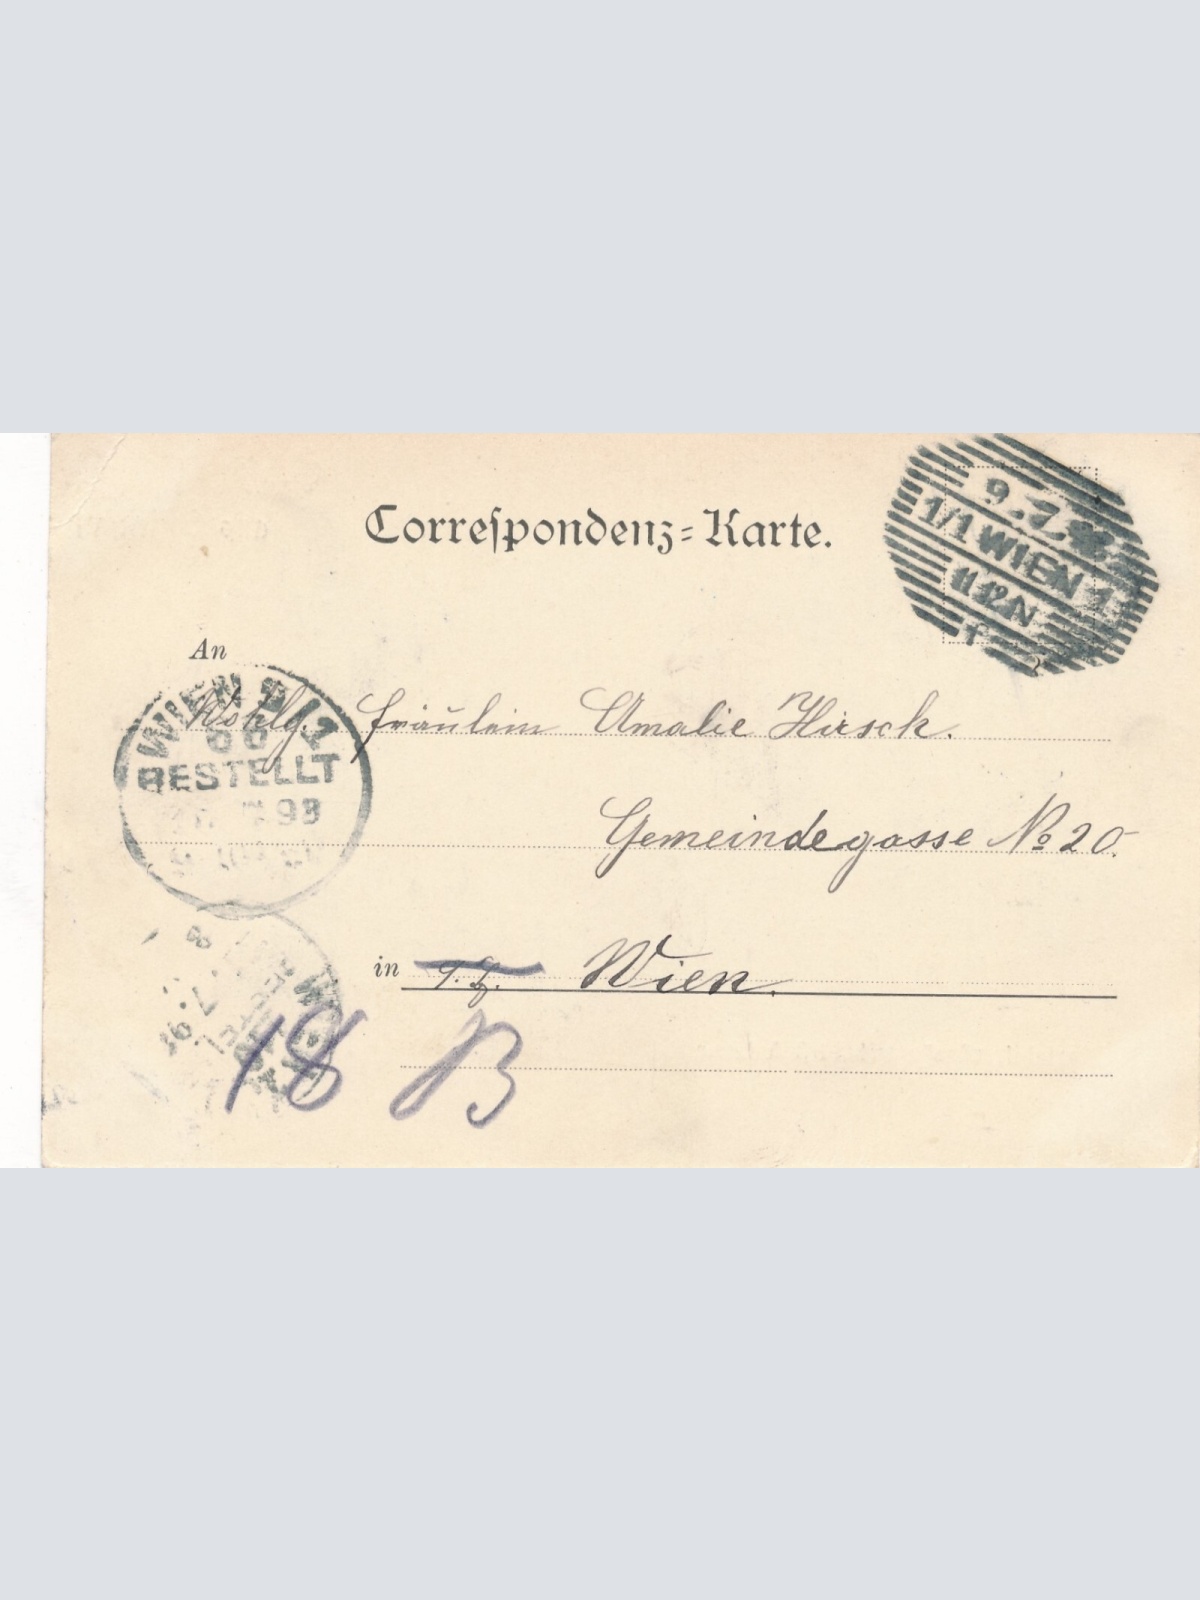 Correſpondenz=Karte.
9.7.98
1/1 WIEN 1
11-12N
f
An
WIEN 9/1
66
BESTELLT
7 98
Wohlg. Fräulein Amalie Hirsck.
Gemeindegasse No 20.
in Wien.
18 B